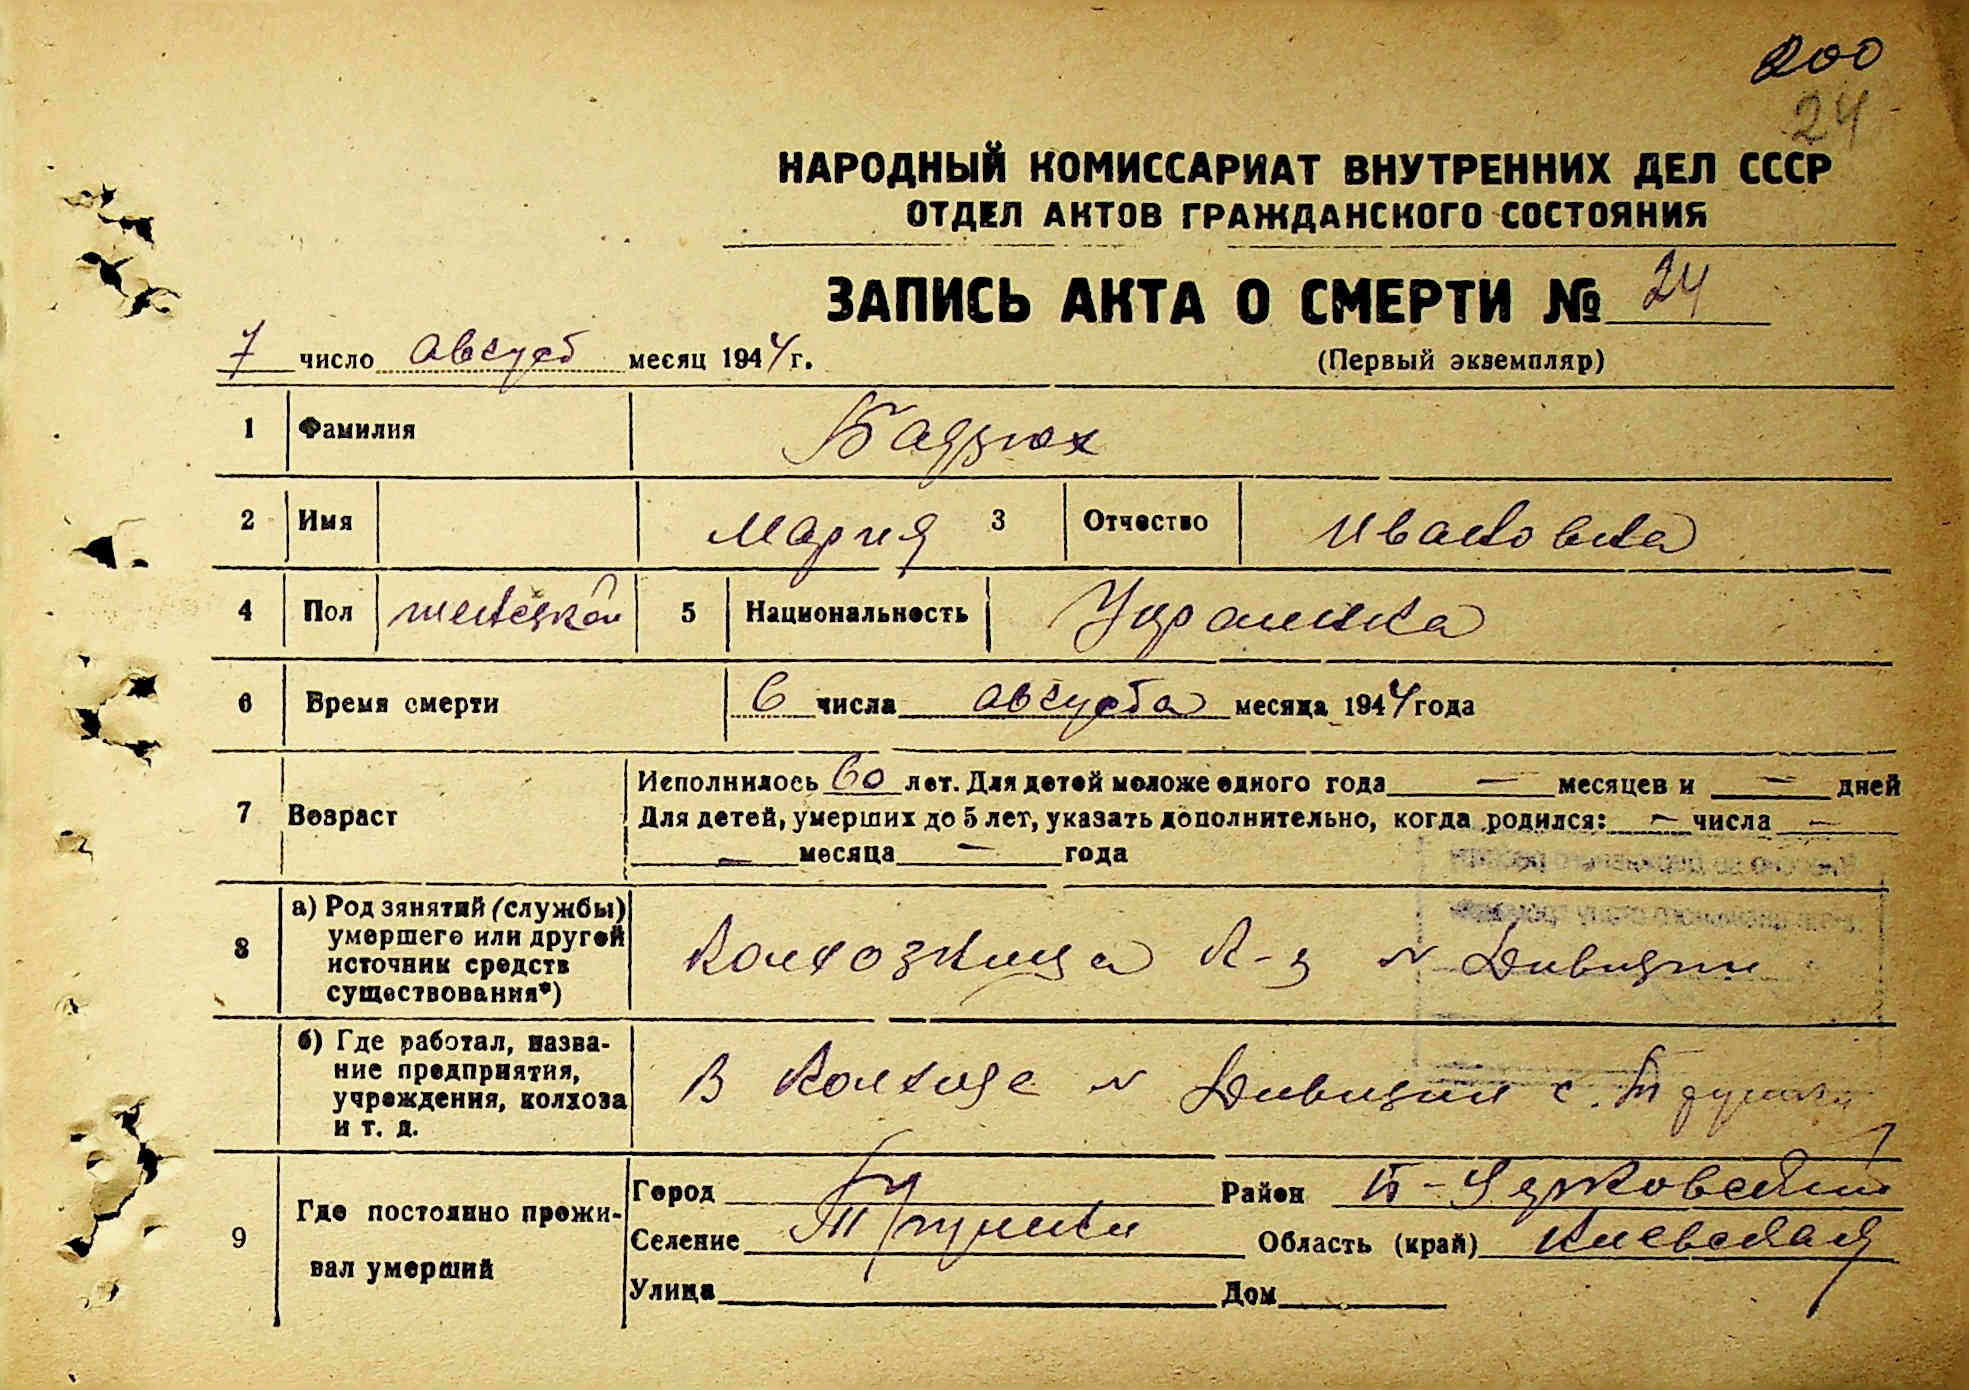 200
24
НАРОДНЫЙ КОМИССАРИАТ ВНУТРЕННИХ ДЕЛ СССР
ОТДЕЛ АКТОВ ГРАЖДАНСКОГО СОСТОЯНИЯ
ЗАПИСЬ АКТА О СМЕРТИ № 24
7 число август месяц 1944 г.
(Первый экземпляр)
1 Фамилия Бадзюх
2 Имя Мария 3 Отчество Ивановна
4 Пол женской 5 Национальность Украинка
6 Время смерти 6 числа августа месяца 1944 года
7 Возраст Исполнилось 60 лет. Для детей моложе одного года — месяцев и — дней
Для детей, умерших до 5 лет, указать дополнительно, когда родился: — числа —
— месяца — года
8 а) Род занятий (службы) умершего или другой источник средств существования*) Колхозница к-з
б) Где работал, название предприятия, учреждения, колхоза и т. д. В колхозе с. Трушки
9 Где постоянно проживал умерший
Город Район Б-Церковский
Селение Трушки Область (край) Киевская
Улица Дом